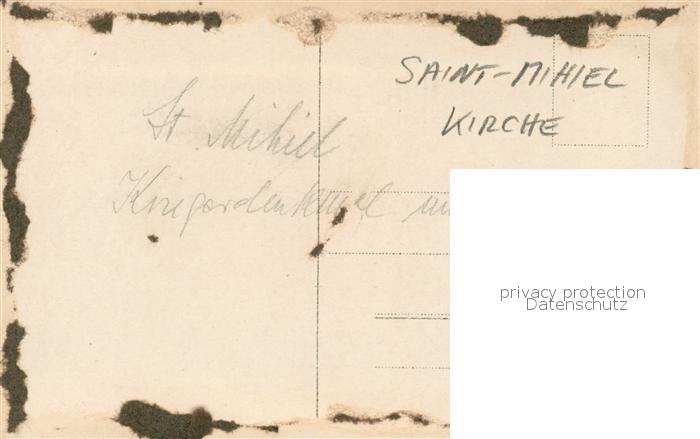 SAINT-MIHIEL
KIRCHE
St. Mihiel
Kriegerdenkmal
privacy protection
Datenschutz